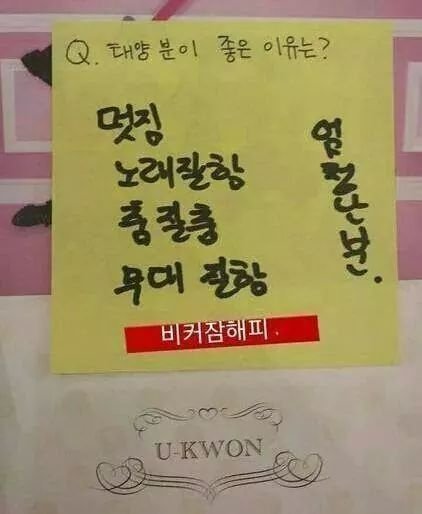 Q. 태양분이 좋은 이유는?
멋짐
노래잘함
춤잘춤
무대 잘함
엄청난분.
비커잠해피.
U-KWON